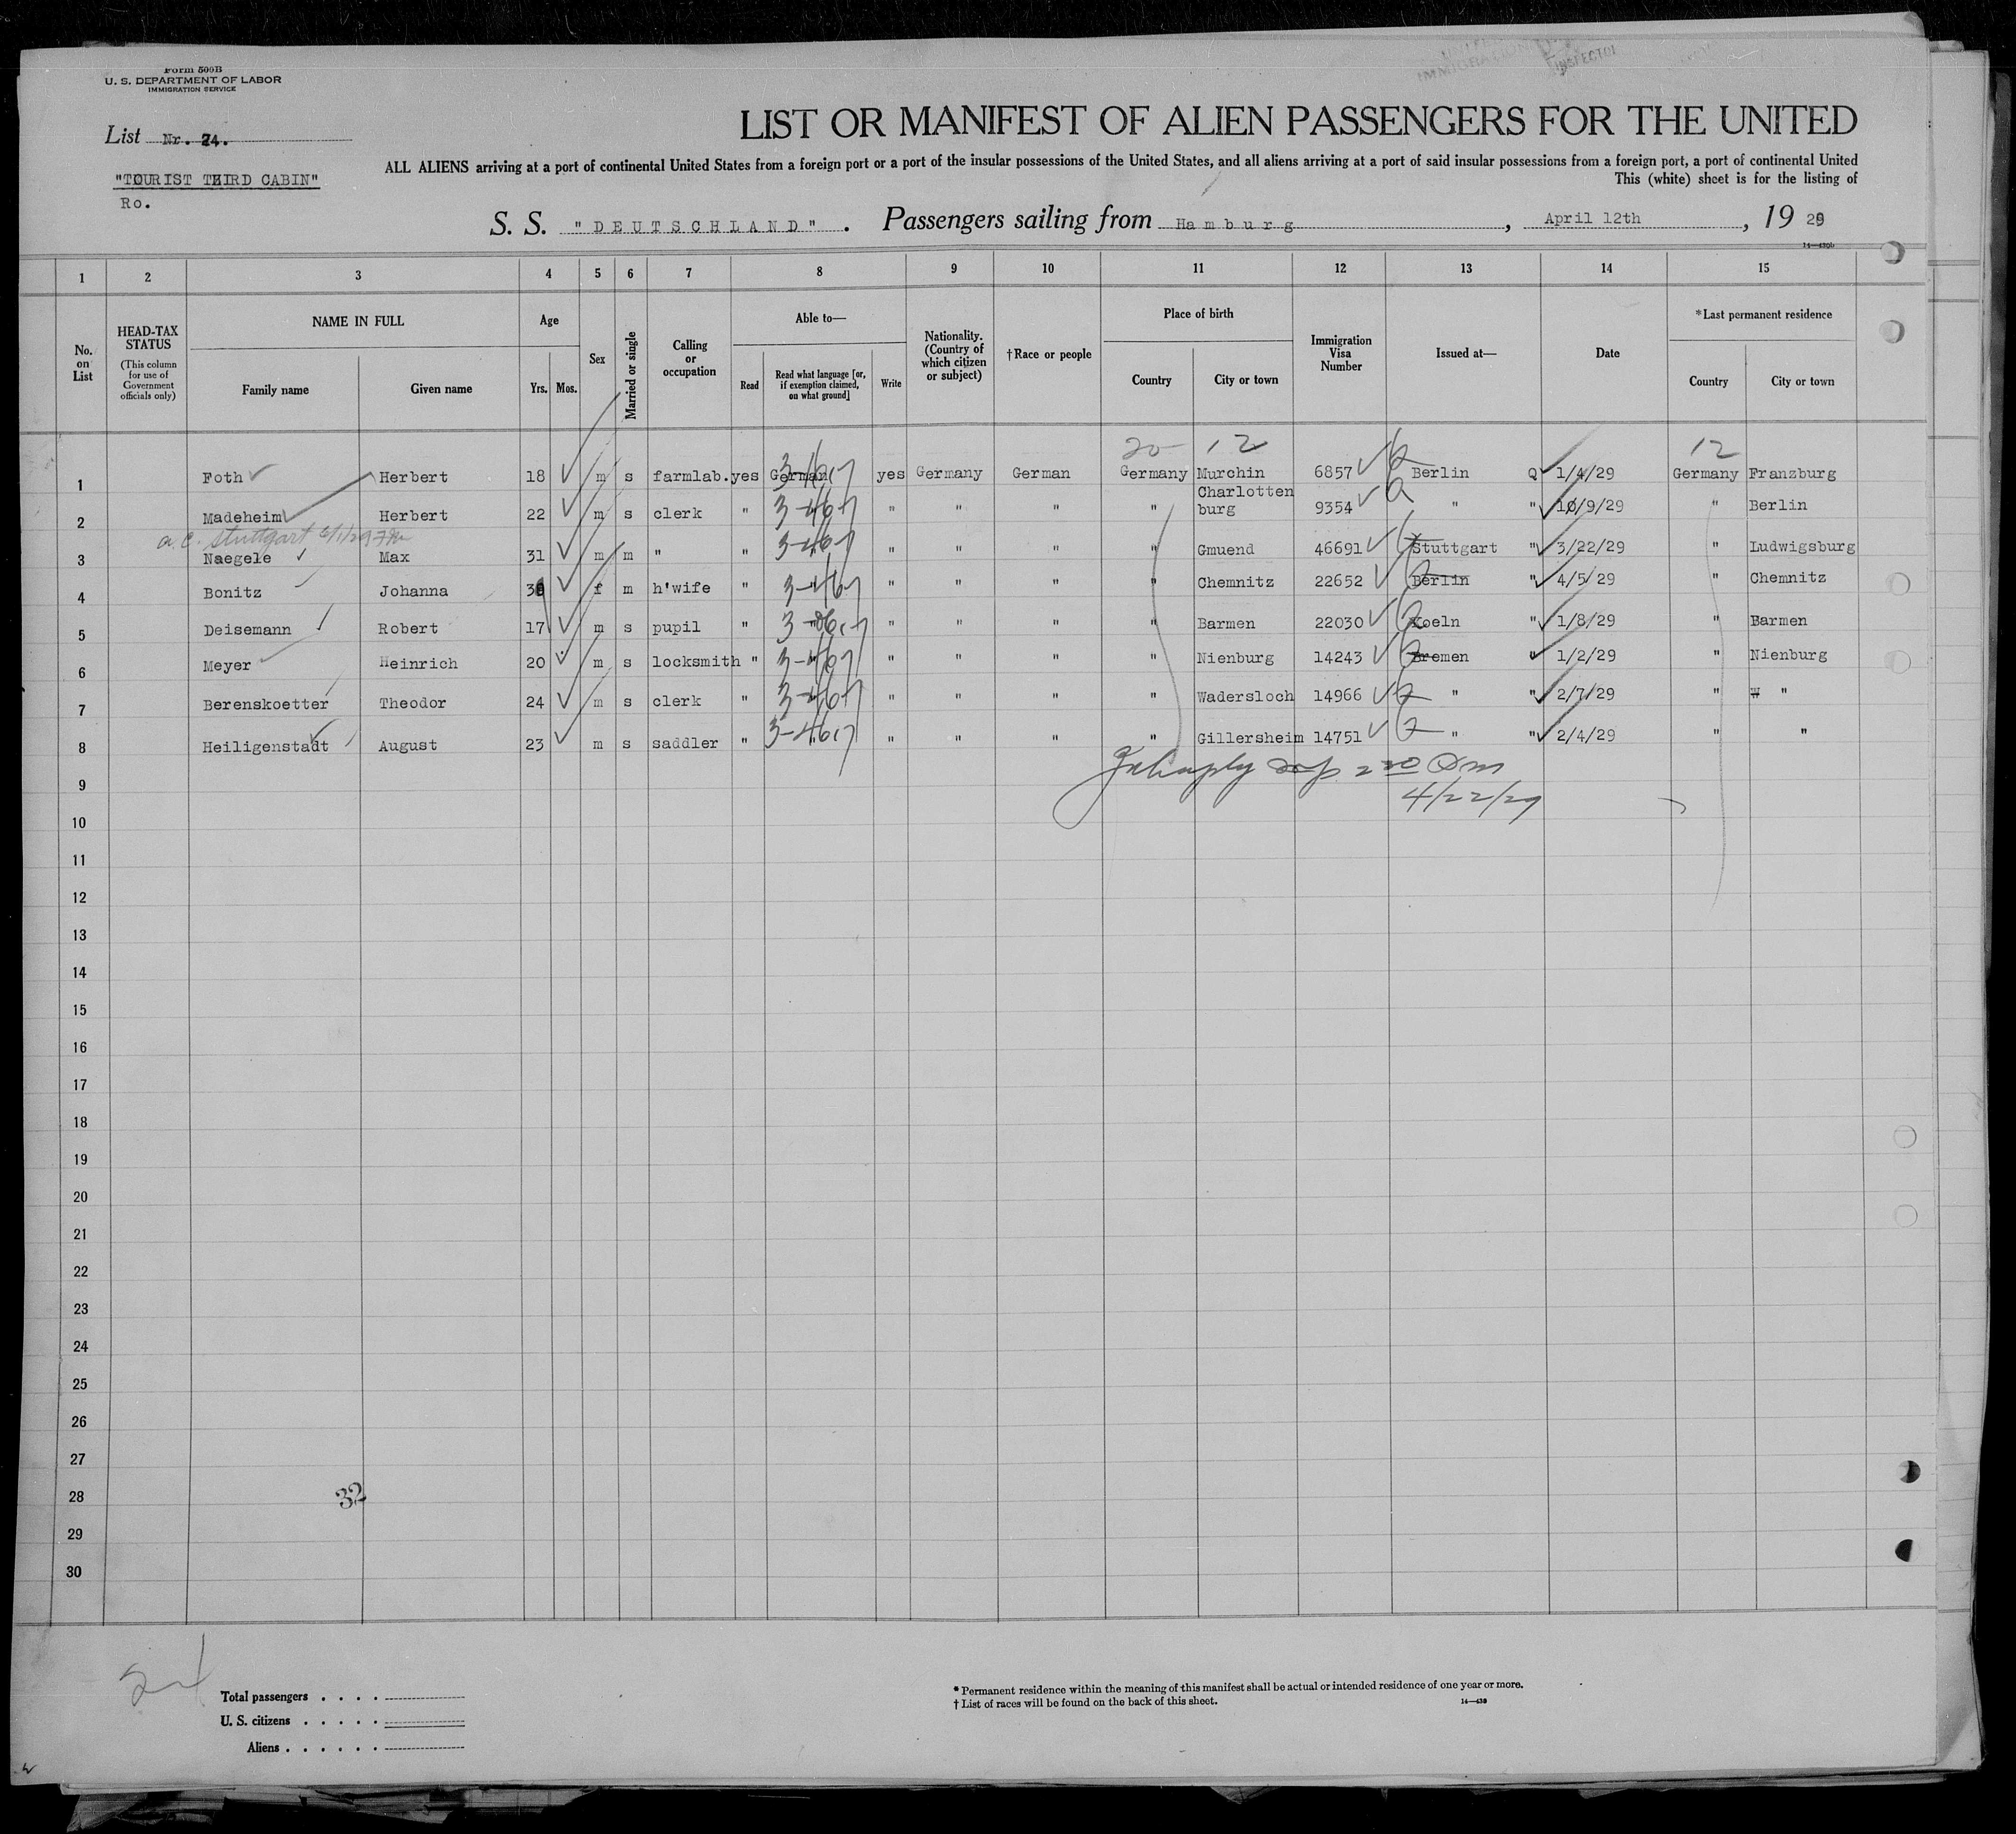 Form 500B
U. S. DEPARTMENT OF LABOR
IMMIGRATION SERVICE
List Nr. 74.
"TOURIST THIRD CABIN"
Ro.
LIST OR MANIFEST OF ALIEN PASSENGERS FOR THE UNITED
ALL ALIENS arriving at a port of continental United States from a foreign port or a port of the insular possessions of the United States, and all aliens arriving at a port of said insular possessions from a foreign port, a port of continental United
This (white) sheet is for the listing of
S. S. "DEUTSCHLAND". Passengers sailing from Hamburg, April 12th, 19 29
14—430b
1 2 3 4 5 6 7 8 9 10 11 12 13 14 15
No. on List
HEAD-TAX STATUS
(This column for use of Government officials only)
NAME IN FULL
Family name Given name
Age
Yrs. Mos.
Sex
Married or single
Calling or occupation
Able to—
Read
Read what language [or, if exemption claimed, on what ground]
Write
Nationality. (Country of which citizen or subject)
†Race or people
Place of birth
Country City or town
Immigration Visa Number
Issued at—
Date
*Last permanent residence
Country City or town
20 12 12
1 Foth Herbert 18 m s farmlab. yes German yes Germany German Germany Murchin 6857 Berlin Q 1/4/29 Germany Franzburg
2 Madeheim Herbert 22 m s clerk " " " " " " Charlotten burg 9354 " " 10/9/29 " Berlin
a.c. Stuttgart
3 Naegele Max 31 m m " " " " " " " Gmuend 46691 Stuttgart " 3/22/29 " Ludwigsburg
4 Bonitz Johanna f m h'wife " " " " " " Chemnitz 22652 Berlin " 4/5/29 " Chemnitz
5 Deisemann Robert 17 m s pupil " " " " " " Barmen 22030 Koeln " 1/8/29 " Barmen
6 Meyer Heinrich 20 m s locksmith " " " " " " Nienburg 14243 Bremen " 1/2/29 " Nienburg
7 Berenskoetter Theodor 24 m s clerk " " " " " " Wadersloch 14966 " " 2/7/29 " "
8 Heiligenstadt August 23 m s saddler " " " " " Gillersheim 14751 " " 2/4/29 " "
4/22/29
9
10
11
12
13
14
15
16
17
18
19
20
21
22
23
24
25
26
27
28
32
29
30
Total passengers . . . .
U. S. citizens . . . . .
Aliens . . . . . .
* Permanent residence within the meaning of this manifest shall be actual or intended residence of one year or more.
† List of races will be found on the back of this sheet.
14—430